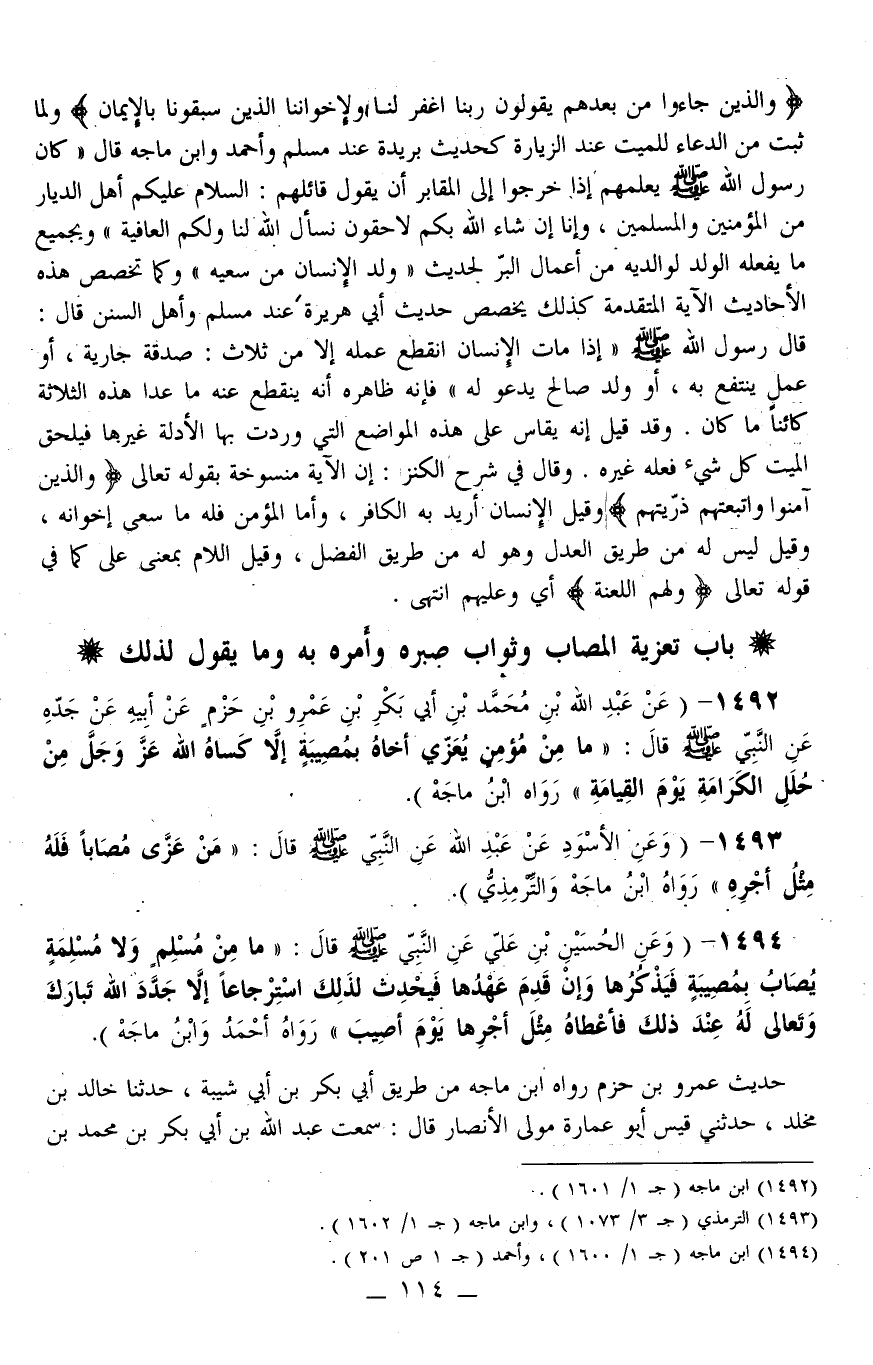 ﴿ والذين جاءوا من بعدهم يقولون ربنا اغفر لنا ولإخواننا الذين سبقونا بالإيمان ﴾ ولما
ثبت من الدعاء للميت عند الزيارة كحديث بريدة عند مسلم وأحمد وابن ماجه قال « كان
رسول الله ﷺ يعلمهم إذا خرجوا إلى المقابر أن يقول قائلهم : السلام عليكم أهل الديار
من المؤمنين والمسلمين ، وإنا إن شاء الله بكم لاحقون نسأل الله لنا ولكم العافية » وبجميع
ما يفعله الولد لوالديه من أعمال البرّ لحديث « ولد الإنسان من سعيه » وكما تخصص هذه
الأحاديث الآية المتقدمة كذلك يخصص حديث أبي هريرة عند مسلم وأهل السنن قال :
قال رسول الله ﷺ « إذا مات الإنسان انقطع عمله إلا من ثلاث : صدقة جارية ، أو
عمل ينتفع به ، أو ولد صالح يدعو له » فإنه ظاهره أنه ينقطع عنه ما عدا هذه الثلاثة
كائناً ما كان . وقد قيل إنه يقاس على هذه المواضع التي وردت بها الأدلة غيرها فيلحق
الميت كل شيء فعله غيره . وقال في شرح الكنز : إن الآية منسوخة بقوله تعالى ﴿ والذين
آمنوا واتبعتهم ذرّيتهم ﴾ وقيل الإنسان أريد به الكافر ، وأما المؤمن فله ما سعى إخوانه ،
وقيل ليس له من طريق العدل وهو له من طريق الفضل ، وقيل اللام بمعنى على كما في
قوله تعالى ﴿ ولهم اللعنة ﴾ أي وعليهم انتهى .
✹ باب تعزية المصاب وثواب صبره وأمره به وما يقول لذلك ✹
١٤٩٢– ( عَنْ عَبْدِ الله بْنِ مُحَمَّد بْنِ أبي بَكْرِ بْنِ عَمْرِو بْنِ حَزْمٍ عَنْ أبيهِ عَنْ جَدّهِ
عَنِ النَّبيّ ﷺ قالَ : « ما مِنْ مُؤمِنٍ يُعَزّي أخاهُ بمُصِيبَةٍ إلَّا كَساهُ الله عَزَّ وَجَلَّ مِنْ
حُلَلِ الكَرَامَةِ يَوْمَ القِيامَةِ » رَوَاه ابْنُ ماجَهْ ).
١٤٩٣– ( وَعَنِ الأسْوَدِ عَنْ عَبْدِ الله عَنِ النَّبيّ ﷺ قالَ : « مَنْ عَزَّى مُصَاباً فَلَهُ
مِثْلُ أجْرِهِ » رَوَاهُ ابْنُ ماجَهْ وَالتِّرْمِذِيُّ ).
١٤٩٤– ( وَعَنِ الحُسَيْنِ بْنِ عَليّ عَنِ النَّبيّ ﷺ قالَ : « ما مِنْ مُسْلِمٍ وَلا مُسْلِمَةٍ
يُصَابُ بِمُصِيبَةٍ فَيَذْكُرُها وَإنْ قَدِمَ عَهْدُها فَيحْدِث لذَلِكَ اسْتِرْجاعاً إلَّا جَدَّدَ الله تَبارَكَ
وَتَعالى لَهُ عِنْدَ ذلكَ فأعْطاهُ مِثْلَ أجْرِها يَوْمَ أصِيبَ » رَوَاهُ أحْمَدُ وَابْنُ ماجَهْ ).
حديث عمرو بن حزم رواه ابن ماجه من طريق أبي بكر بن أبي شيبة ، حدثنا خالد بن
مخلد ، حدثني قيس أبو عمارة مولى الأنصار قال : سمعت عبد الله بن أبي بكر بن محمد بن
(١٤٩٢) ابن ماجه ( جـ ١/ ١٦٠١ ) .
(١٤٩٣) الترمذي ( جـ ٣/ ١٠٧٣ ) ، وابن ماجه ( جـ ١/ ١٦٠٢ ) .
(١٤٩٤) ابن ماجه ( جـ ١/ ١٦٠٠ ) ، وأحمد ( جـ ١ ص ٢٠١ ) .
– ١١٤ –